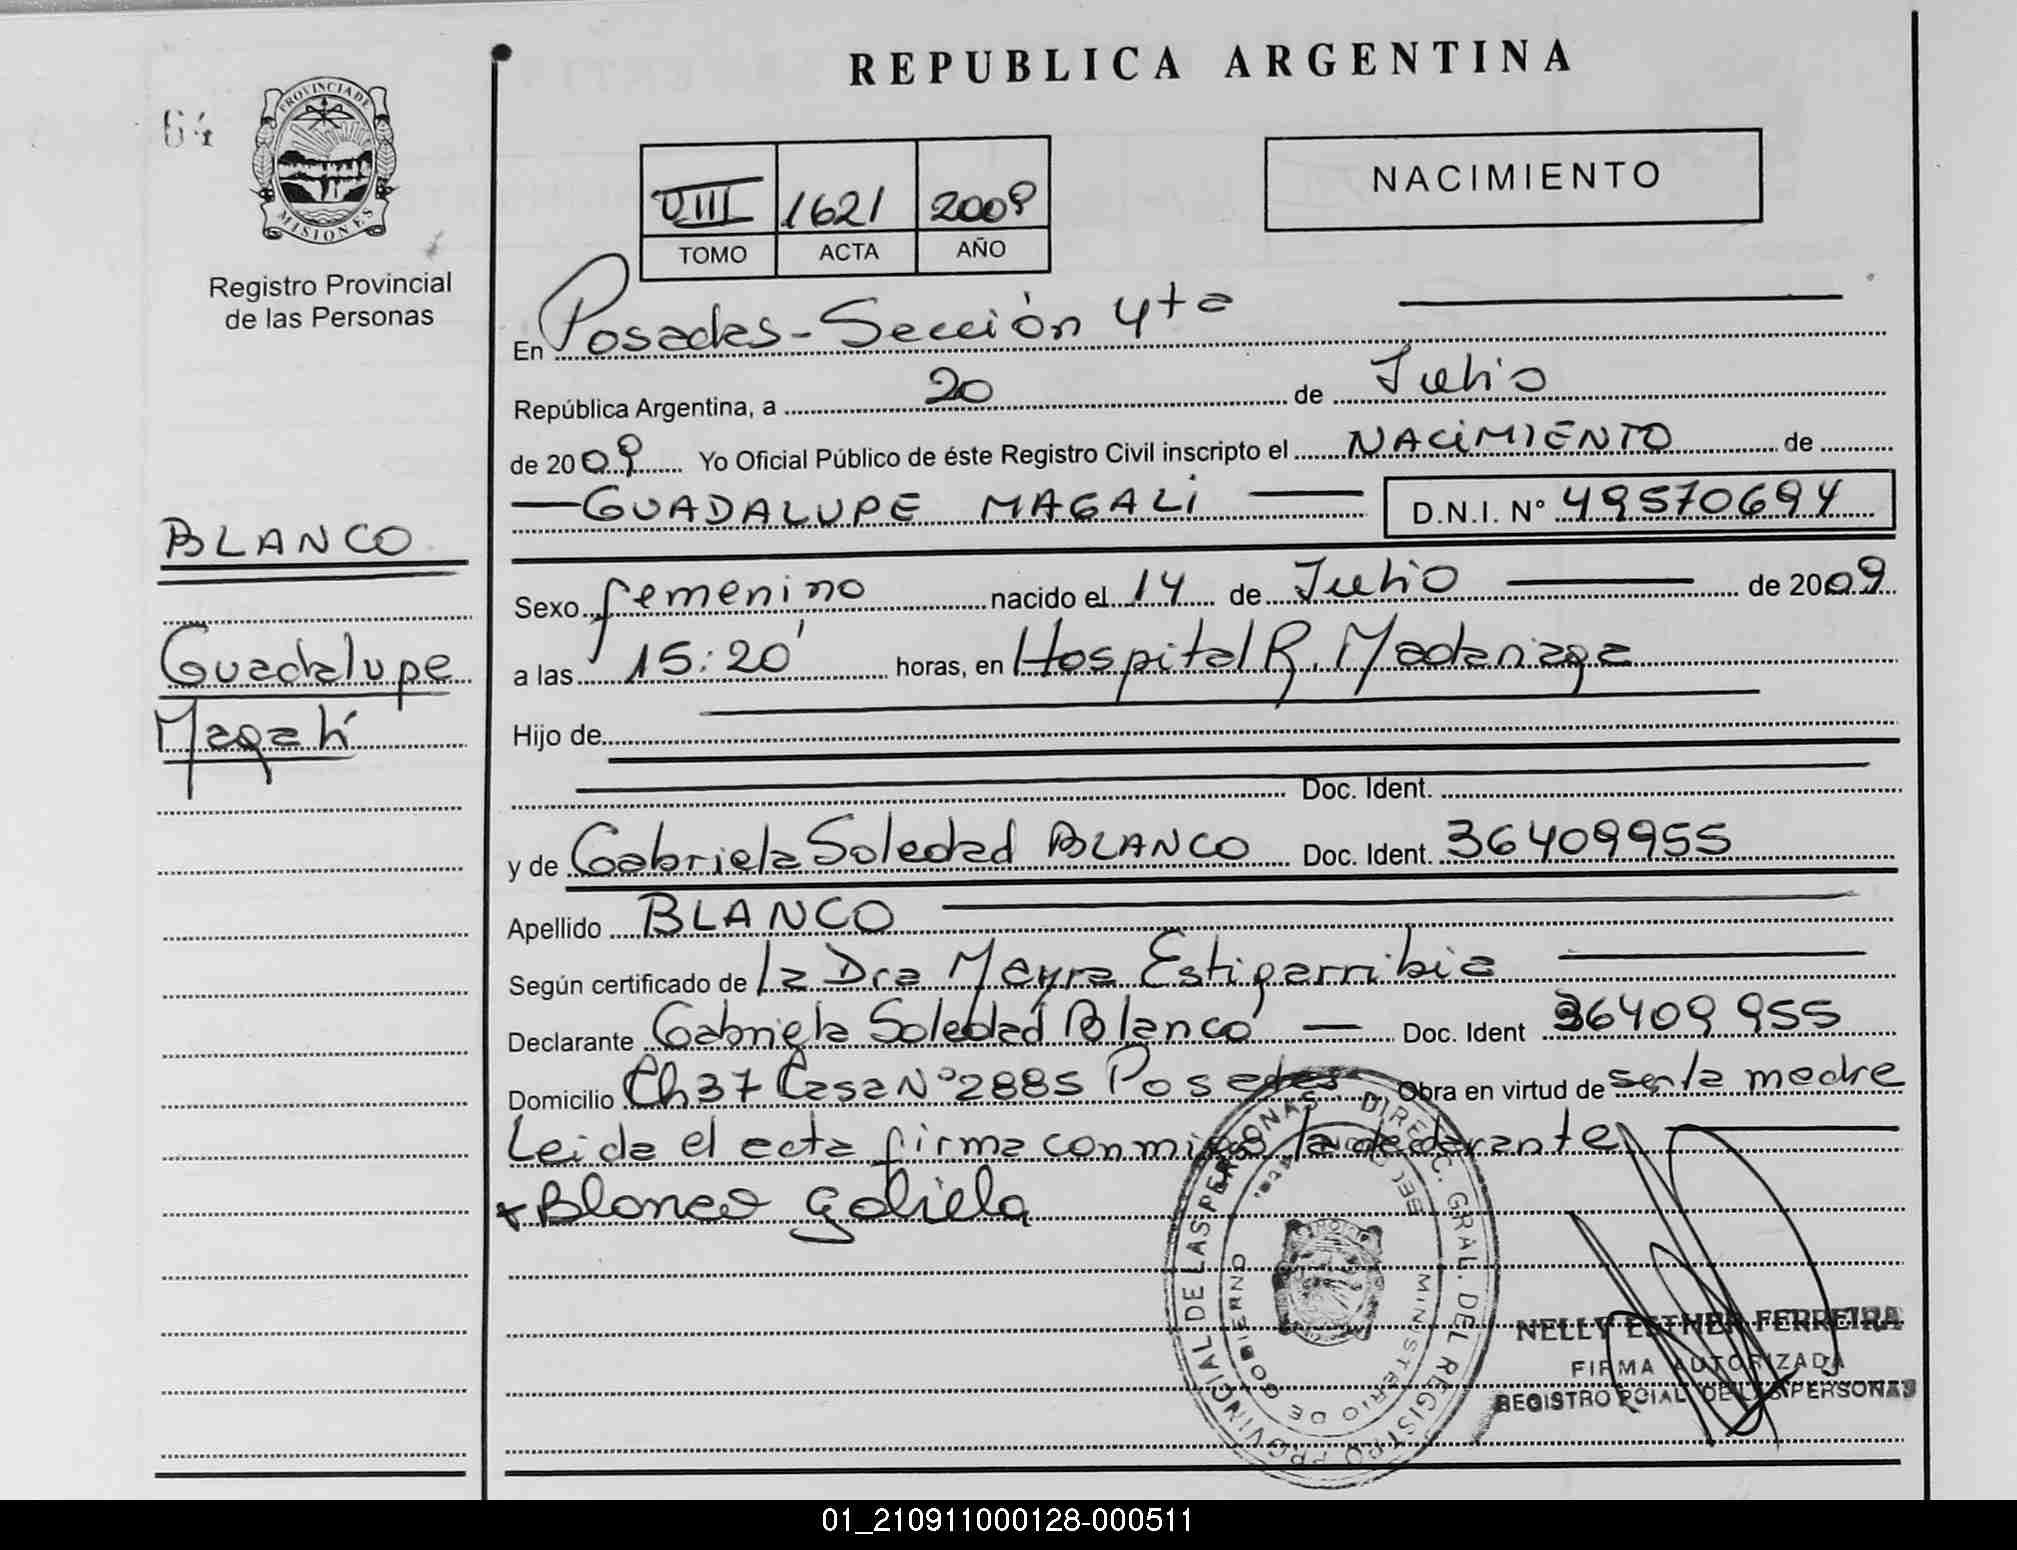 REPUBLICA ARGENTINA
64
PROVINCIA DE MISIONES
Registro Provincial
de las Personas
VIII 1621 2009
TOMO ACTA AÑO
NACIMIENTO
En Posadas - Sección 4ta
República Argentina, a 20 de Julio
de 2009 Yo Oficial Público de éste Registro Civil inscripto el NACIMIENTO de
GUADALUPE MAGALI D.N.I. Nº 49570694
BLANCO
Guadalupe
Magalí
Sexo femenino nacido el 14 de Julio de 2009
a las 15:20' horas, en Hospital R. Madariaga
Hijo de
Doc. Ident.
y de Gabriela Soledad BLANCO Doc. Ident. 36409955
Apellido BLANCO
Según certificado de la Dra Mayra Estigarribia
Declarante Gabriela Soledad Blanco Doc. Ident 36409955
Domicilio Ch37 Casa Nº 2885 Posadas Obra en virtud de ser la madre
Leida el acta firma conmigo la declarante
+ Blanco gabiela
DIREC. GRAL. DEL REGISTRO PROVINCIAL DE LAS PERSONAS
MINISTERIO DE GOBIERNO
NELLY ESTHER FERREIRA
FIRMA AUTORIZADA
REGISTRO PCIAL DE LAS PERSONAS
01_210911000128-000511